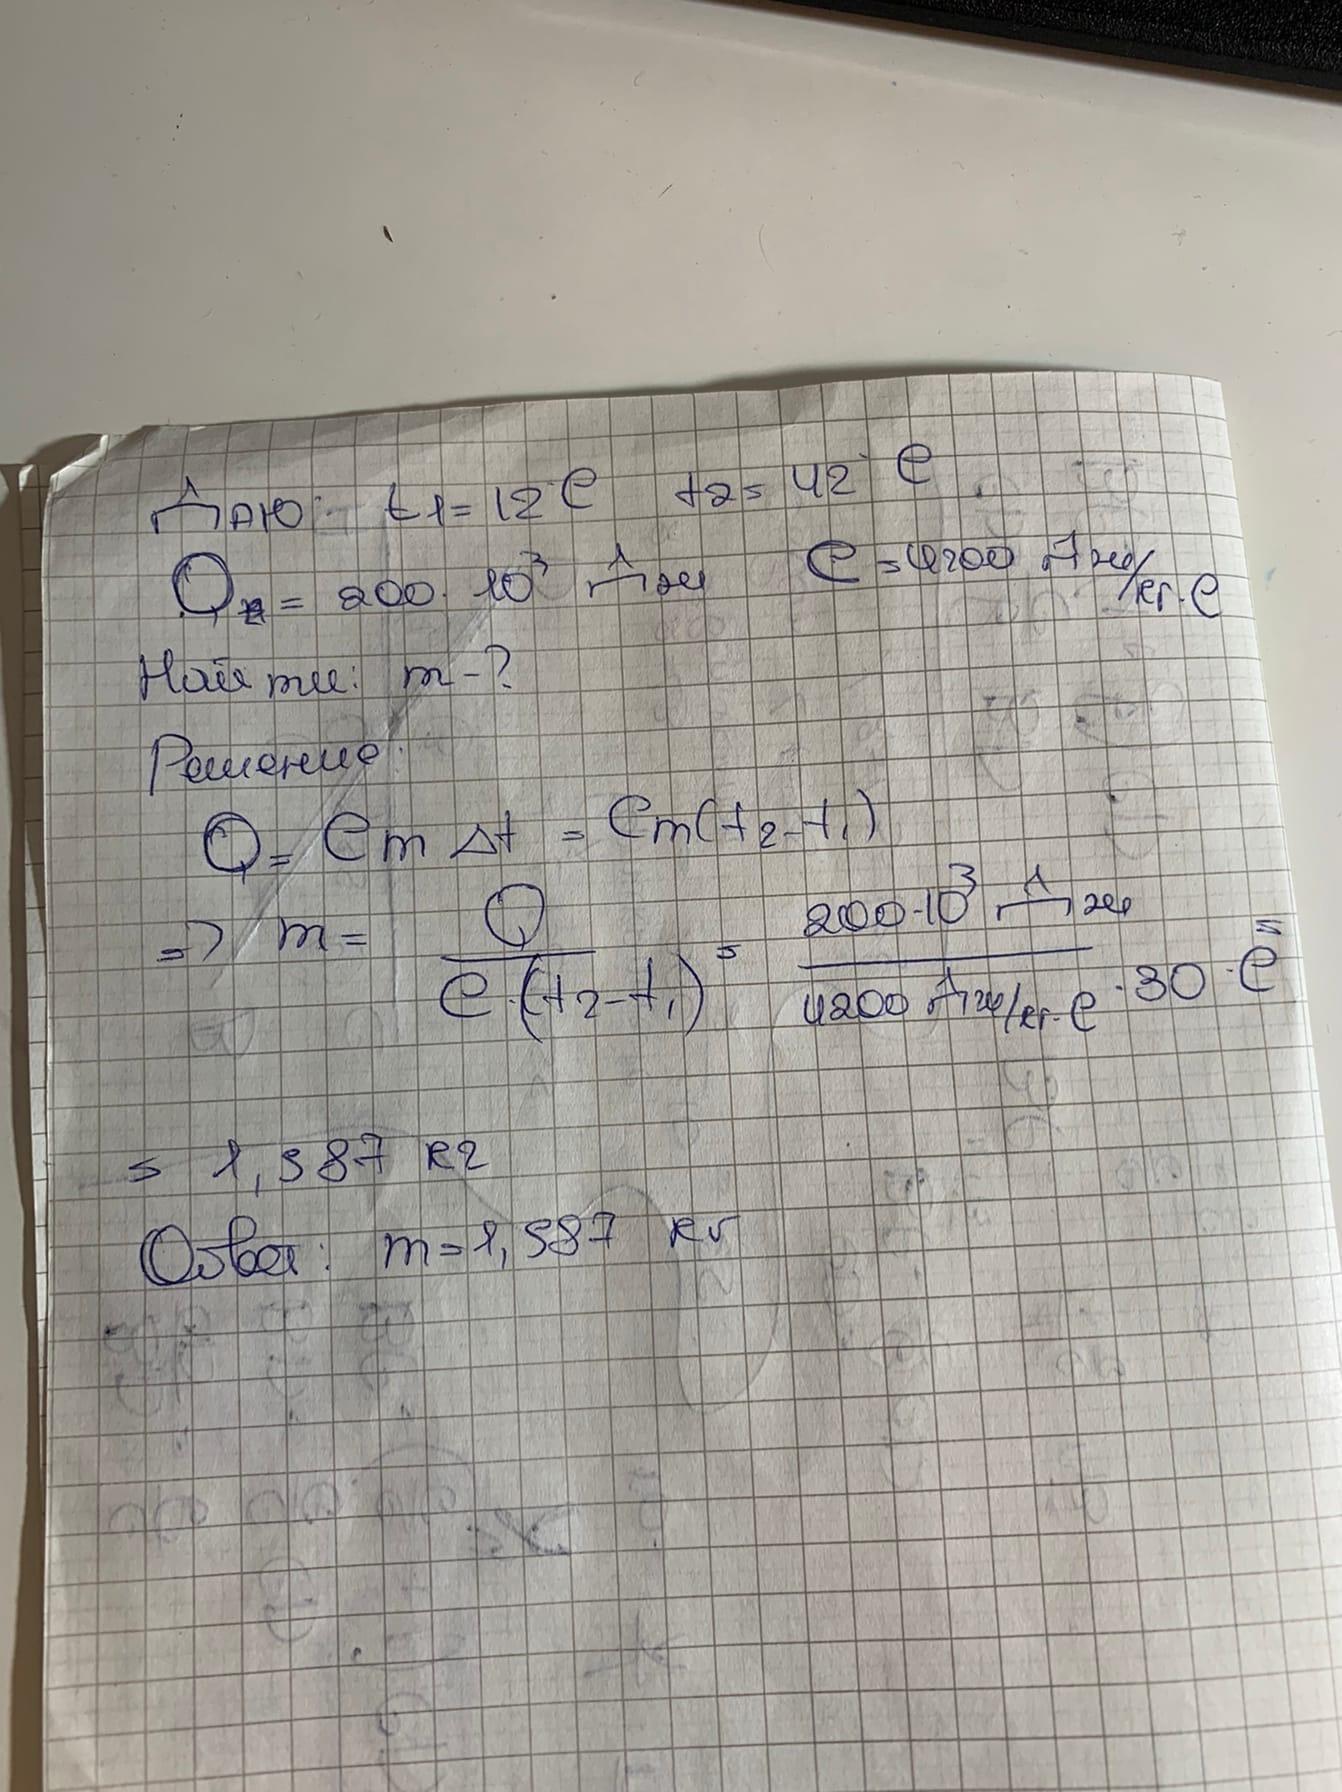 Дано: t1 = 12°C t2 = 42°C
Q = 200·10³ Дж C = 4200 Дж/кг·C
Найти: m - ?
Решение:
Q = Cm Δt = Cm(t₂-t₁)
=> m = Q / C·(t₂-t₁) = 200·10³ Дж / 4200 Дж/кг·C · 30°C =
= 1,587 кг
Ответ: m = 1,587 кг